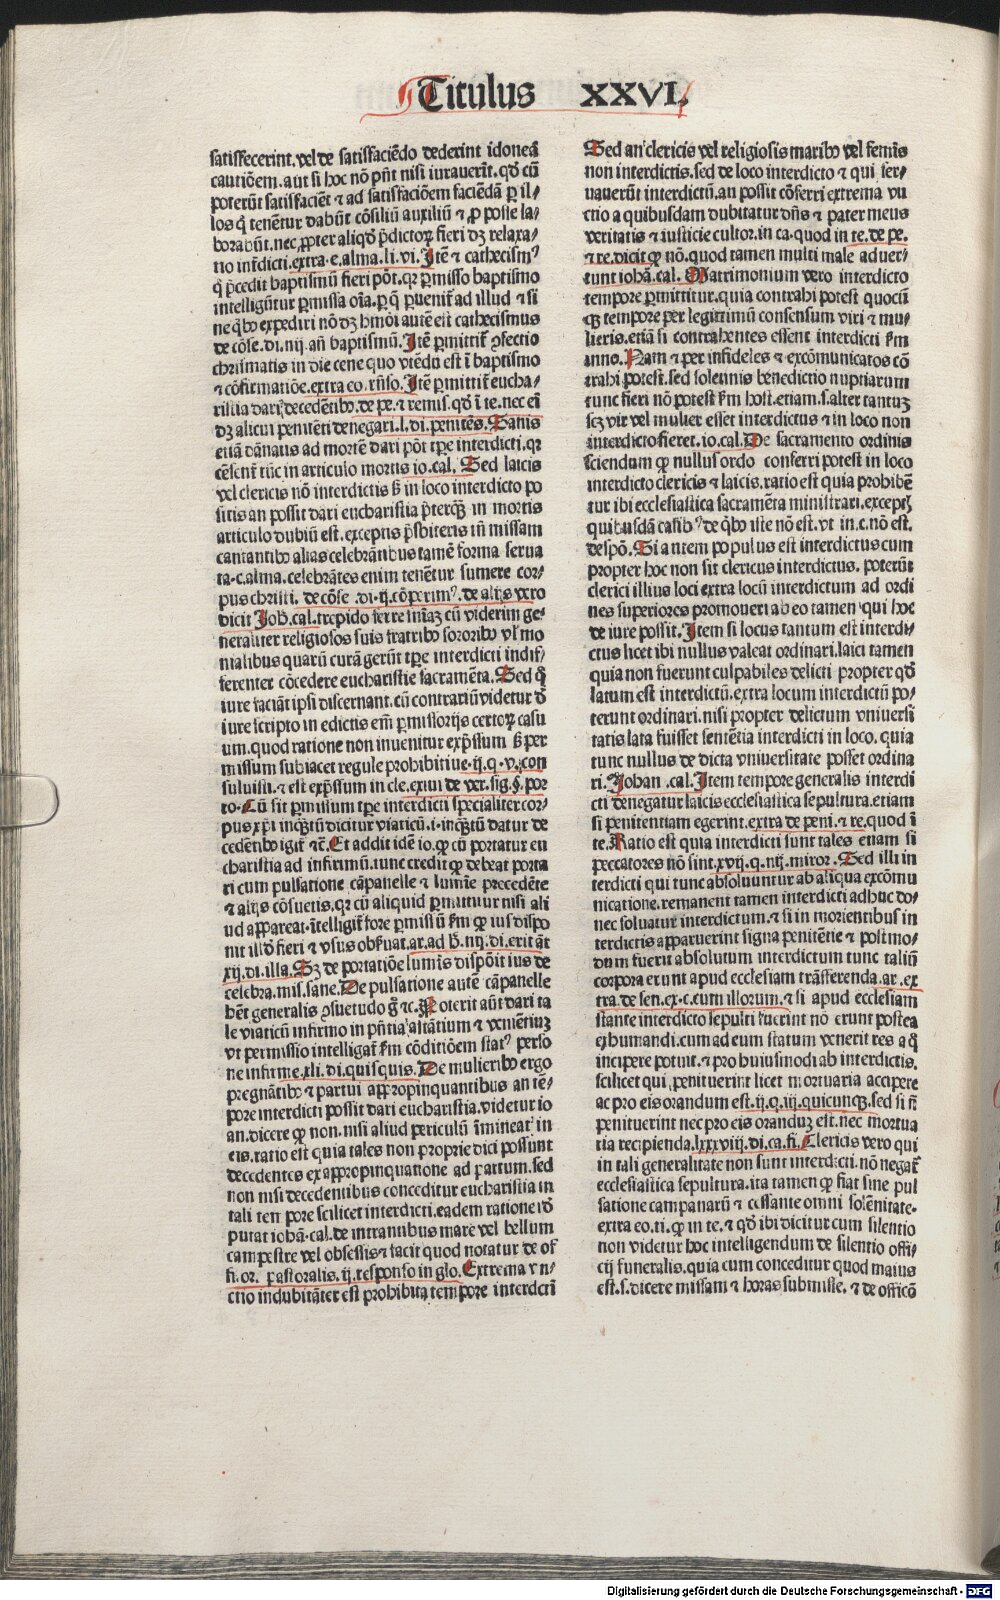 Titulus XXVI.
satisfecerint. vel de satisfaciēdo dederint idoneā
cautiōem. aut si hoc nō pn̄t nisi iurauerīt. qd̓ cū
poterūt satisfaciēt ⁊ ad satisfaciōem faciēdā ꝑ il-
los q̄ tenētur dabūt cōsiliū auxiliū ⁊ ꝓ posse la-
borabūt. nec ꝓpter aliqd̓ p̄dictoꝝ fieri dꝫ relaxa-
tio int̄dicti. extra. e. alma. li. vi. Itē ⁊ cathecism⁹
q̄ p̄cedit baptismū fieri pōt. qꝛ ꝑmisso baptismo
intelligūtur ꝑmissa oīa. ꝑ q̄ ꝑuenit̄ ad illud ⁊ si
ne qbꝰ expediri nō dꝫ hmōi autē est cathecismus
de cōse. di. iiij. an̄ baptismū. Itē ꝑmittit̄ ꝯfectio
chrismatis in die cene quo vtēdū est ī baptismo
⁊ cōfirmatiōe. extra eo. rn̄so. Itē ꝑmittit̄ eucha-
ristia dari decedētibꝰ. de pe. ⁊ remis. qd̓ ī te. nec eī
dꝫ alicui penitēti denegari. l. di. penitēs. Sanis
etiā dānatis ad mortē dari pōt tꝑe interdicti. qꝛ
cēsent̄ tūc in articulo mortis io. cal. Sed laicis
vel clericis nō interdictis s̄ in loco interdicto po
sitis an possit dari eucharistia p̄terqꝫ in mortis
articulo dubiū est. exceptis p̄sbiteris in̄ missam
cantantibꝰ alias celebrātibus tamē forma serua
ta. c. alma. celebrātes enim tenētur sumere cor-
pus christi. de cōse. di. ij. cōperim⁹. de alijs vero
dicit Joh̄. cal. trepido ferre sn̄iaꝫ cū viderim ge-
neraliter religiosos suis fratribꝰ sororibꝰ vl̓ mo
nialibus quarū curā gerūt tꝑe interdicti indif-
ferenter cōcedere eucharistie sacramēta. Sed q̄
iure faciāt ipsi discernant. cū contrariū videtur d̓
iure scripto in edictis em̄ ꝑmissorijs certoꝝ casu
um. quod ratione non inuenitur exp̄ssum s̄ per
missum subiacet regule prohibitiue. ij. q. v. con
suluisti. ⁊ est exp̄ssum in cle. exiui de ver. sig. §. por
ro. Cū sit ꝑmissum tꝑe interdicti specialiter cor-
pus xp̄i inqꝫtū dicitur viaticū. i. inqꝫtū datur de
cedētibꝰ igit̄ ⁊c̄. Et addit idē io. ꝙ cū portatur eu
charistia ad infirmū. tunc credit ꝙ debeat porta
ri cum pulsatione cāpanelle ⁊ lumīe precedēte
⁊ alijs cōsuetis. qꝛ cū aliquid ꝑmittitur nisi ali
ud appareat. ītelligit̄ fore ꝑmissū s̄m ꝙ ius dispo
nit illd̓ fieri ⁊ vsus obs̓uat. ar. ad h̄. iiij. di. erit āt
xij. di. illa. Sꝫ de portatiōe lumīs dispōit ius de
celebra. mis. sane. De pulsatione autē cāpanelle
hēt generalis ꝯsuetudo ḡ ⁊c. Poterit aūt dari ta
le viaticū infirmo in pn̄tia astātium ⁊ veniētiuꝫ
vt permissio intelligat̄ s̄m cōditiōem stat⁹ perso
ne infirme. xli. di. quisquis. De mulieribꝰ ergo
pregnātibꝰ ⁊ partui appropinquantibus an tē-
pore interdicti possit dari eucharistia. videtur io
an. dicere ꝙ non. nisi aliud periculū īmineat in
eis. ratio est quia tales non proprie dici possunt
decedentes ex appropinquatione ad partum. sed
non nisi decedentibus conceditur eucharistia in
tali tempore scilicet interdicti. eadem ratione id̓
putat iohā. cal. de intrantibus mare vel bellum
campestre vel obsessis ⁊ facit quod notatur de of
fi. or. pastoralis. ij. responso in glo. Extrema vn-
ctio indubitāter est prohibita tempore interdicti
Sed an clericis vel religiosis maribꝰ vel femīs
non interdictis. sed de loco interdicto ⁊ qui ser-
uauerūt interdictū. an possit cōferri extrema vn
ctio a quibusdam dubitatur dn̄s ⁊ pater meus
veritatis ⁊ iusticie cultor. in ca. quod in te. de pe.
⁊ re. dicit ꝙ nō. quod tamen multi male aduer-
tunt iohā. cal. Matrimonium vero interdicto
tempore ꝑmittitur. quia contrahi potest quocū
qꝫ tempore per legittimū consensum viri ⁊ mu-
lieris. etiā si contrahentes essent interdicti s̄m
anno. Nam ⁊ per infideles ⁊ excōmunicatos cō
trahi potest. sed solennis benedictio nuptiarum
tunc fieri nō potest s̄m host. etiam. s. alter tantuꝫ
scꝫ vir vel mulier esset interdictus ⁊ in loco non
interdicto fieret. io. cal. De sacramento ordinis
sciendum ꝙ nullus ordo conferri potest in loco
interdicto clericis ⁊ laicis. ratio est quia prohibē
tur ibi ecclesiastica sacramēta ministrari. exceptꝭ
quibusdā casibꝰ de qbꝰ iste nō est. vt in. c. nō est.
de spō. Si autem populus est interdictus cum
propter hoc non sit clericus interdictus. poterūt
clerici illius loci extra locū interdictum ad ordi
nes superiores promoueri ab eo tamen qui hoc
de iure possit. Item si locus tantum est interdi-
ctus licet ibi nullus valeat ordinari. laici tamen
quia non fuerunt culpabiles delicti propter qd̓
latum est interdictū. extra locum interdictū po-
terunt ordinari. nisi propter delictum vniuersi
tatis lata fuisset sentētia interdicti in loco. quia
tunc nullus de dicta vniuersitate posset ordina
ri. Johan. cal. Item tempore generalis interdi
cti denegatur laicis ecclesiastica sepultura. etiam
si penitentiam egerint. extra de peni. ⁊ re. quod ī
te. Ratio est quia interdicti sunt tales etiam si
peccatores nō sint. xvij. q. iiij. miror. Sed illi in
terdicti qui tunc absoluuntur ab aliqua excōmu
nicatione. remanent tamen interdicti adhuc do-
nec soluatur interdictum. ⁊ si in morientibus in
terdictis apparuerint signa penitētie ⁊ postmo-
dum fuerit absolutum interdictum tunc taliū
corpora erunt apud ecclesiam trāsferenda. ar. ex
tra. de sen. ex. c. cum illorum. ⁊ si apud ecclesiam
stante interdicto sepulti fuerint nō erunt postea
exhumandi. cum ad eum statum venerit res a q̄
incipere potuit. ⁊ pro huiusmodi ab interdictis.
scilicet qui penituerint licet mortuaria accipere
ac pro eis orandum est. ij. q. iij. quicunqꝫ. sed si n̄
penituerint nec pro eis oranduꝫ est. nec mortua
ria recipienda. lxxxviij. di. ca. fi. Clericis vero qui
in tali generalitate non sunt interdicti. nō negat̄
ecclesiastica sepultura. ita tamen ꝙ fiat sine pul
satione campanarū ⁊ cessante omni solēnitate.
extra eo. ti. ꝙ in te. ⁊ qd̓ ibi dicitur cum silentio
non videtur hoc intelligendum de silentio offi-
cij funeralis. quia cum conceditur quod maius
est. s. dicere missam ⁊ horas submisse. ⁊ de officō
Digitalisierung gefördert durch die Deutsche Forschungsgemeinschaft - DFG